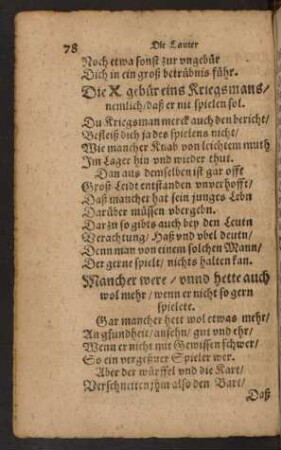 78 Die Lauter
Noch etwa sonst zur vngebür
Dich in ein groß betrübnis führ.
Die X. gebür eins Kriegsmans/
nemlich/ daß er nit spielen sol.
Du Kriegsman merck auch den bericht/
Befleiß dich ja des spielens nicht/
Wie mancher Knab von leichtem muth
Im Lager hin vnd wieder thut.
Dan aus demselben ist gar offt
Groß Leidt entstanden vnverhofft/
Daß mancher hat sein junges Lebn
Darüber müssen vbergebn.
Darzu so gibts auch bey den Leutn
Verachtung/ Haß vnd vbel deutn/
Denn man von einem solchen Mann/
Der gerne spielt/ nichts halten kan.
Mancher were/ vnnd hette auch
wol mehr/ wenn er nicht so gern
spielete.
Gar mancher hett wol etwas mehr/
An gsundheit/ ansehn/ gut vnd ehr/
Wenn er nicht mit Gewissen schwer/
So ein vergeßner Spieler wer.
Aber der würffel vnd die Kart/
Verschneiten jhm also den Bart/
Daß